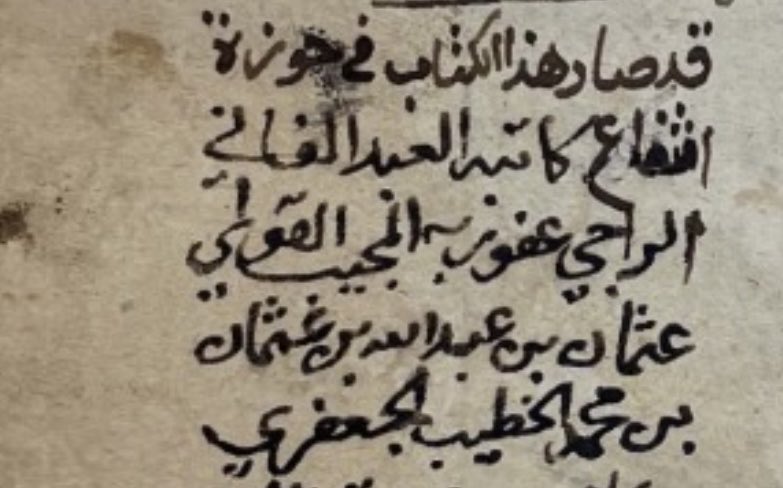 قد صار هذا الكتاب في حوزة
انتفاع كاتبه العبد الفاني
الراجي عفو ربه المجيب القوي
عثمان بن عبد الله بن عثمان
بن محمد الخطيب الجعفري